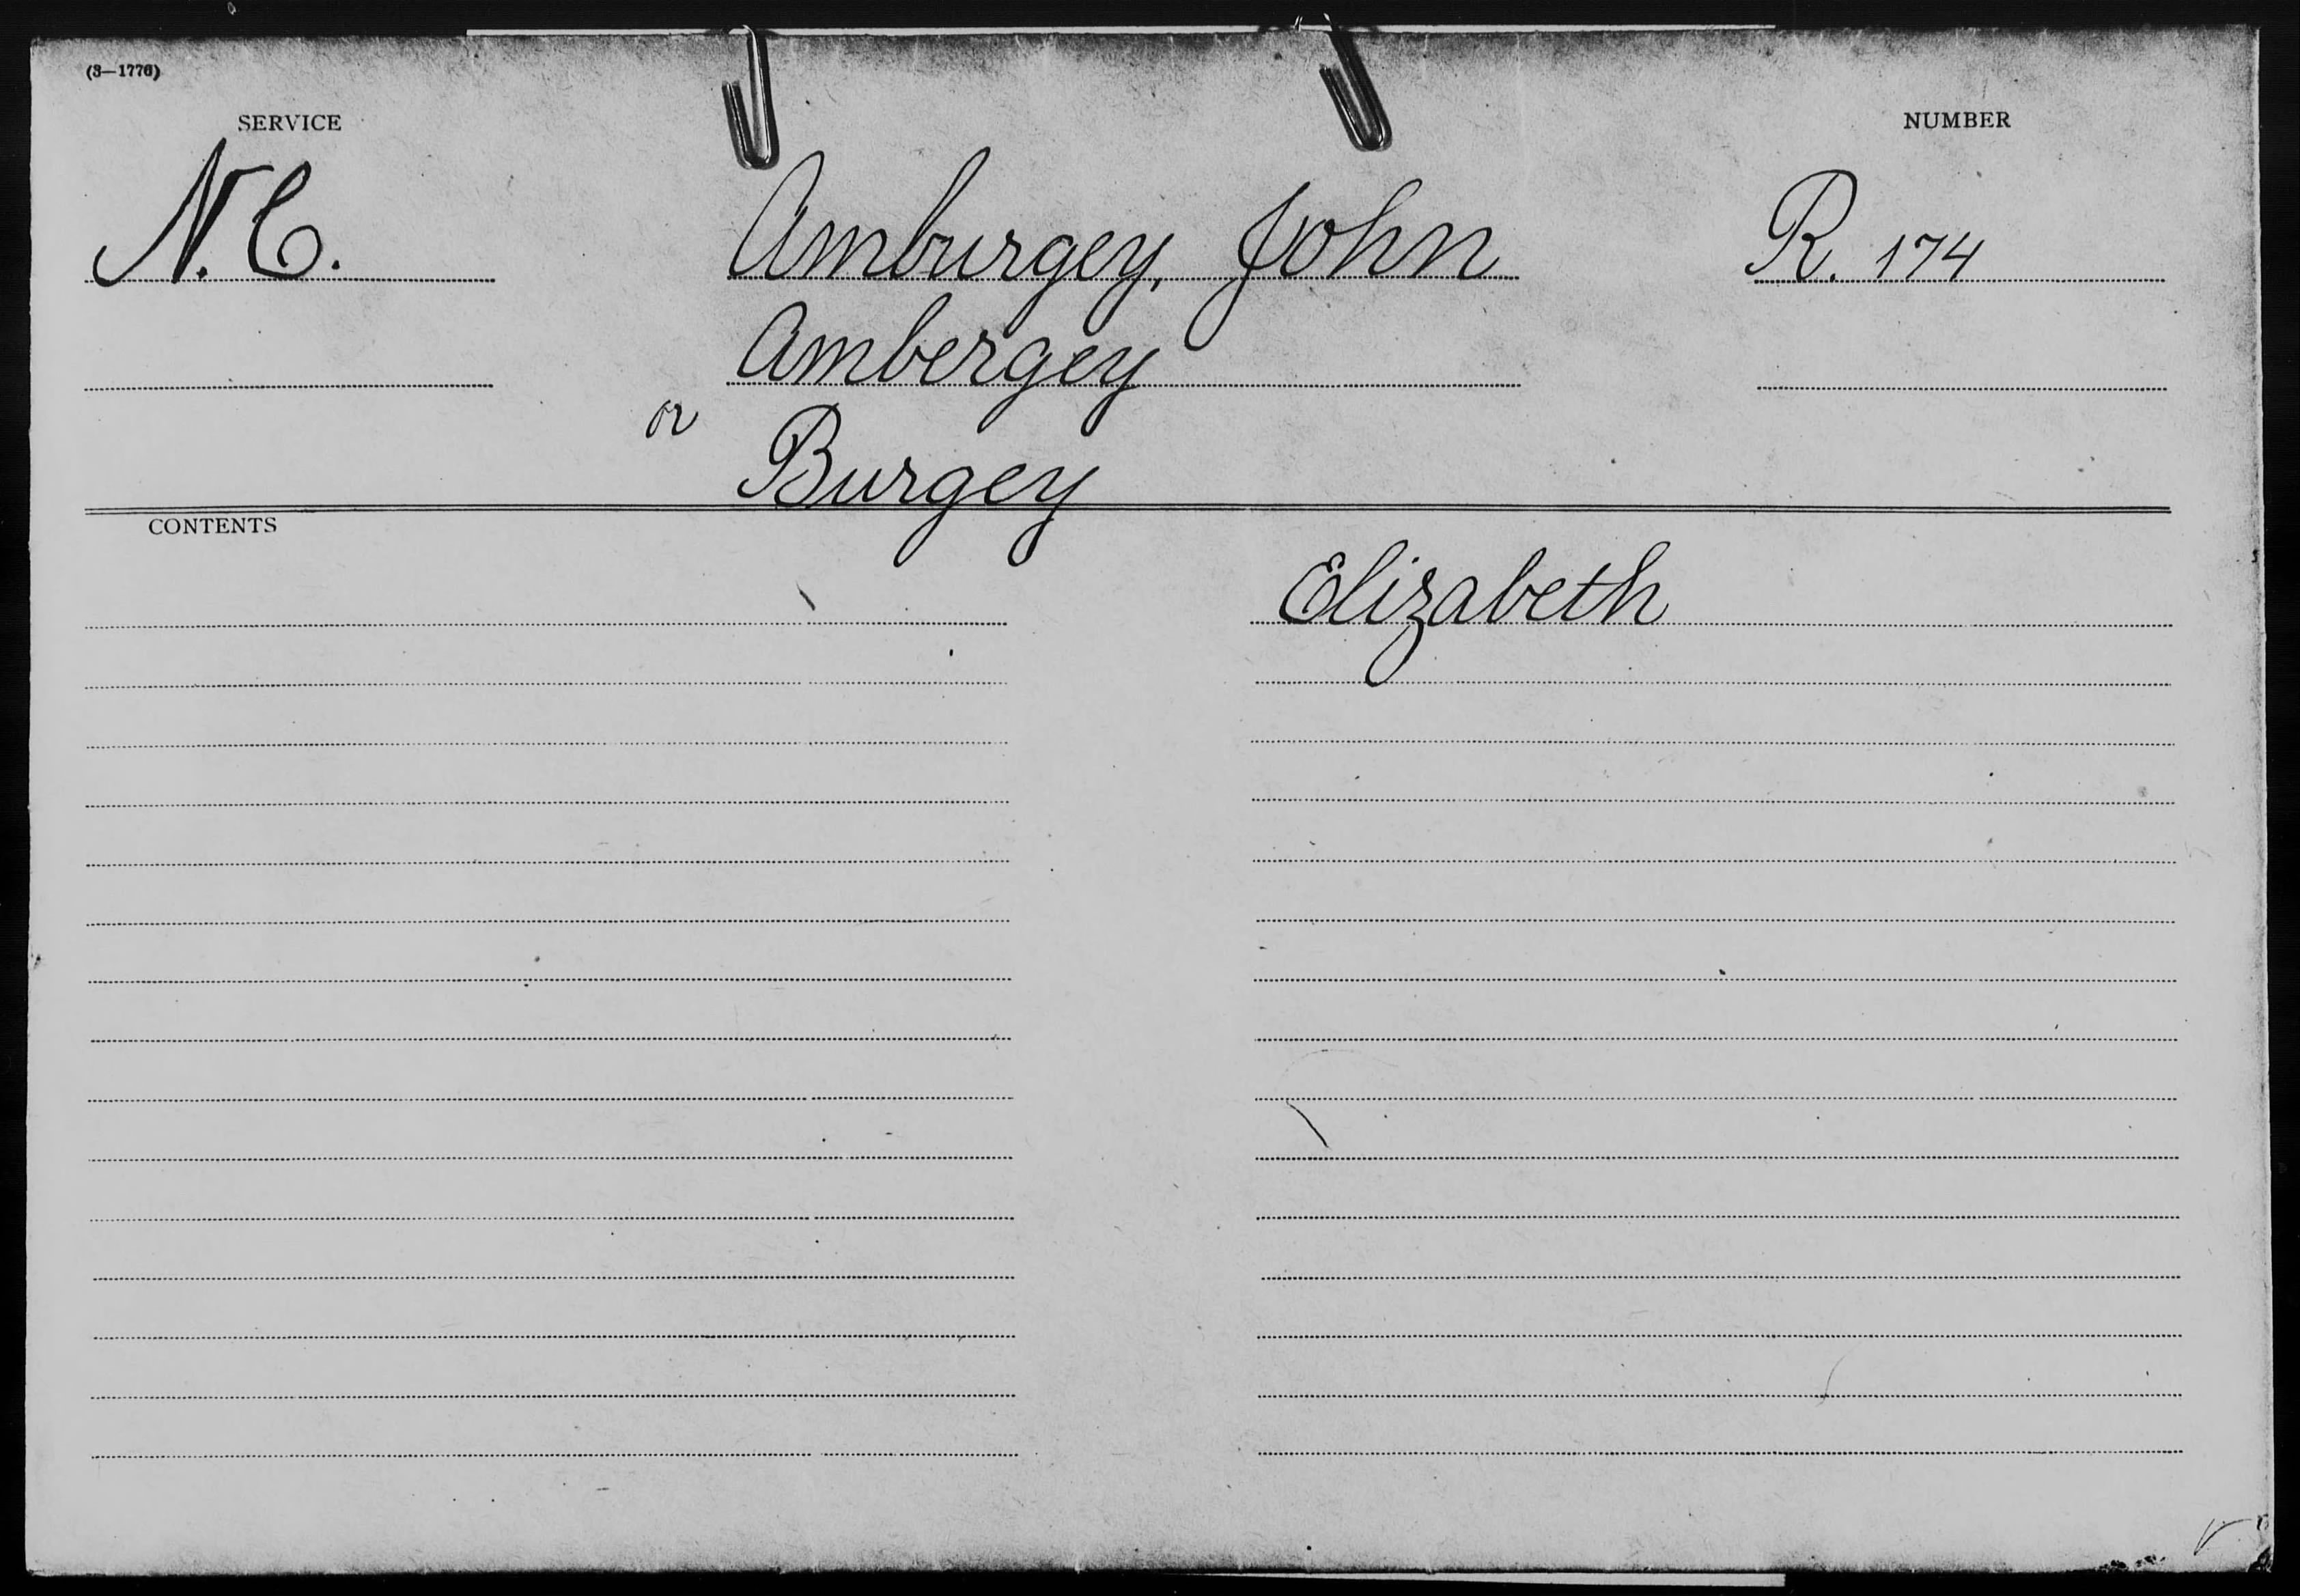 (3—1776)
SERVICE
NUMBER
N.C.
Amburgey, John
R. 174
Ambergey
or
Burgey
CONTENTS
Elizabeth